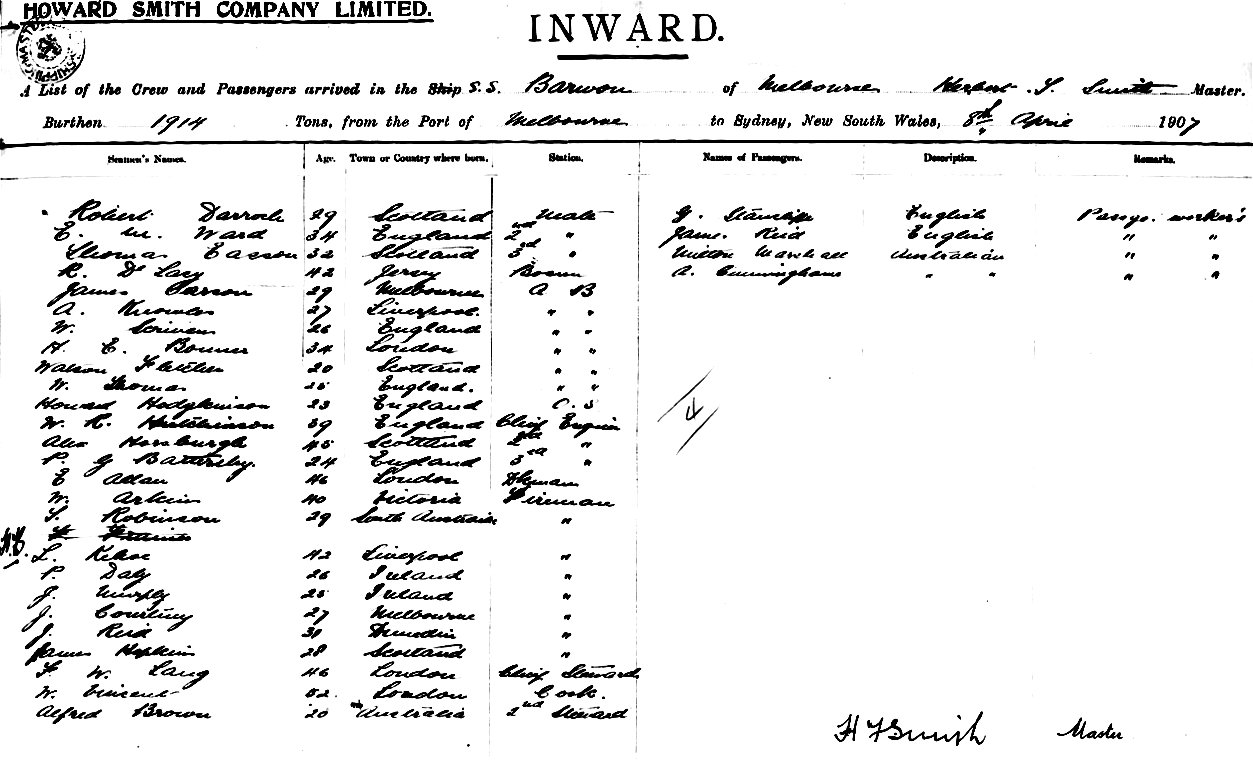 HOWARD SMITH COMPANY LIMITED.
INWARD.
A List of the Crew and Passengers arrived in the Ship S.S. Barwon of Melbourne Herbert Smith Master.
Burthen 1914 Tons, from the Port of Melbourne to Sydney, New South Wales, 8th April 1907
Seamen's Names. Age. Town or Country where born. Station. Names of Passengers. Description. Remarks.
Robert Darroch 29 Scotland Mate G. English Passgr. worker's
E. M. Ward 34 England 2nd " James Reid English " "
Thomas Easson 32 Scotland 3rd " Milton Marshall Australian " "
R. De Lacy 42 Jersey Bosun A. Cunninghame " " " "
James 29 Melbourne A B
A. Knowles 27 Liverpool. " "
W. Scriven 26 England " "
H. E. Bonner 34 London " "
Watson Fletcher 20 Scotland " "
W. Thomas 25 England. " "
Howard Hodgkinson 23 England O.S
W. R. Hutchinson 39 England Chief Engin
Alex Hornburgh 45 Scotland 2nd "
P. G Battersby. 24 England 3rd "
E Allan 46 London
W. 40 Victoria Fireman
S. Robinson 29 South Australia "
L. Kehoe 42 Liverpool "
P. Daly 26 Ireland "
J. Murphy 25 Ireland "
J. Courtney 27 Melbourne "
J. Reid 31 Dunedin "
James Hopkins 28 Scotland "
F W. Lang 46 London Chief Steward
W. Vincent 52. London Cook.
Alfred Brown 20 Australia 2nd Steward
H F Smith Master